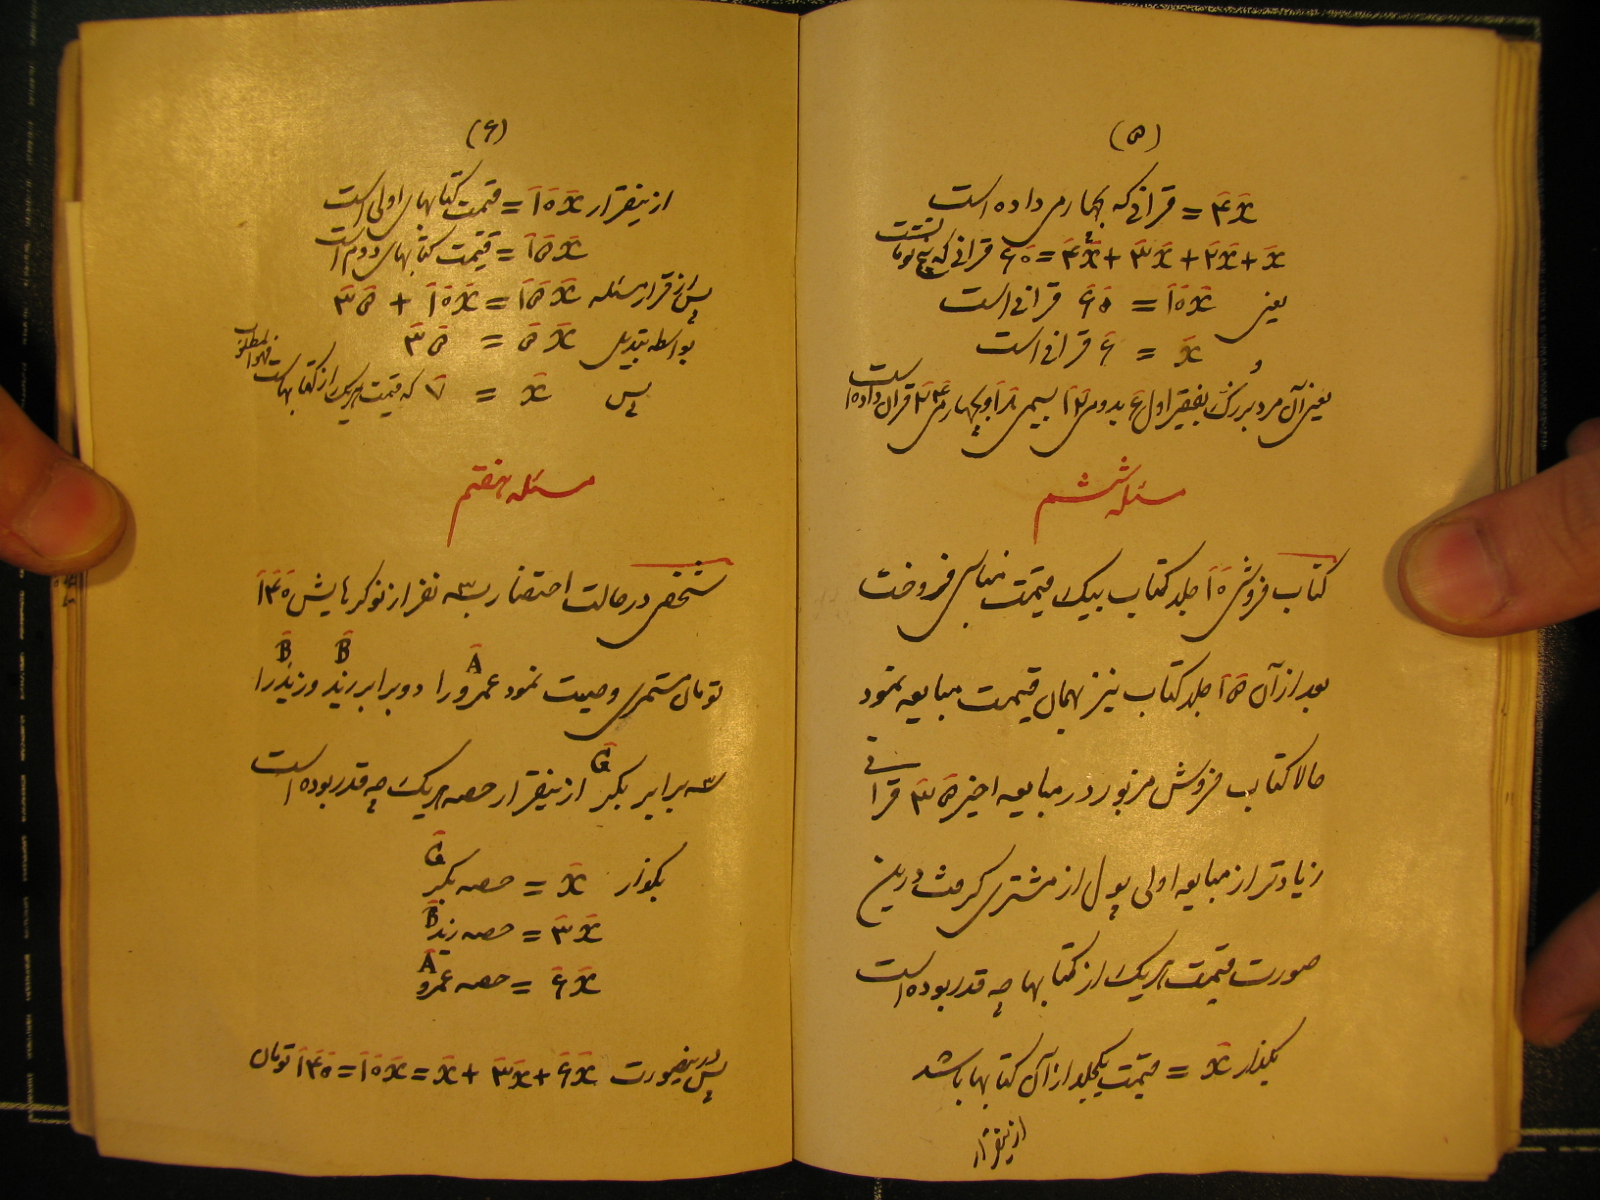 (۵)
۴x = قرانی که بچهارمی داده است
x + ۲x + ۳x + ۴x = ۶۰ قرانی که شش تومانست
یعنی ۱۰x = ۶۰ قرانی است
و x = ۶ قرانی است
یعنی آن مرد بزرگ بفقیر اول ۶ بدومی ۱۲ بسیمی ۱۸ و بچهارمی ۲۴ قران داده است
مسئله ششم
کتاب فروشی ۱۰ جلد کتاب بیک قیمت مناسبی فروخت
بعد از آن ۱۵ جلد کتاب نیز بهمان قیمت مبایعه نمود
حالا کتاب فروش مزبور در مبایعه اخیر ۳۵ قرانی
زیادتر از مبایعه اولی پول از مشتری گرفت درین
صورت قیمت هر یک از کتابها چه قدر بوده است
بگذار x = قیمت یکجلد از آن کتابها باشد
ازینقرار
(۶)
ازینقرار ۱۰x = قیمت کتابهای اولی است
۱۵x = قیمت کتابهای دوم است
پس از قرار مسئله ۱۵x = ۱۰x + ۳۵
بواسطه تبدیل ۵x = ۳۵
پس x = ۷ که قیمت هر یک از کتابهاست فهوالمطلوب
مسئله هفتم
شخصی در حالت احتضار بسه نفر از نوکرهایش ۱۴۰
تومان مستمری وصیت نمود عمرو A را دو برابر زید B و زید B را
سه برابر بکر G ازینقرار حصه هر یک چه قدر بوده است
بگذار x = حصه بکر G
۳x = حصه زید B
۶x = حصه عمرو A
پس بدینصورت ۶x + ۳x + x = ۱۰x = ۱۴۰ تومان